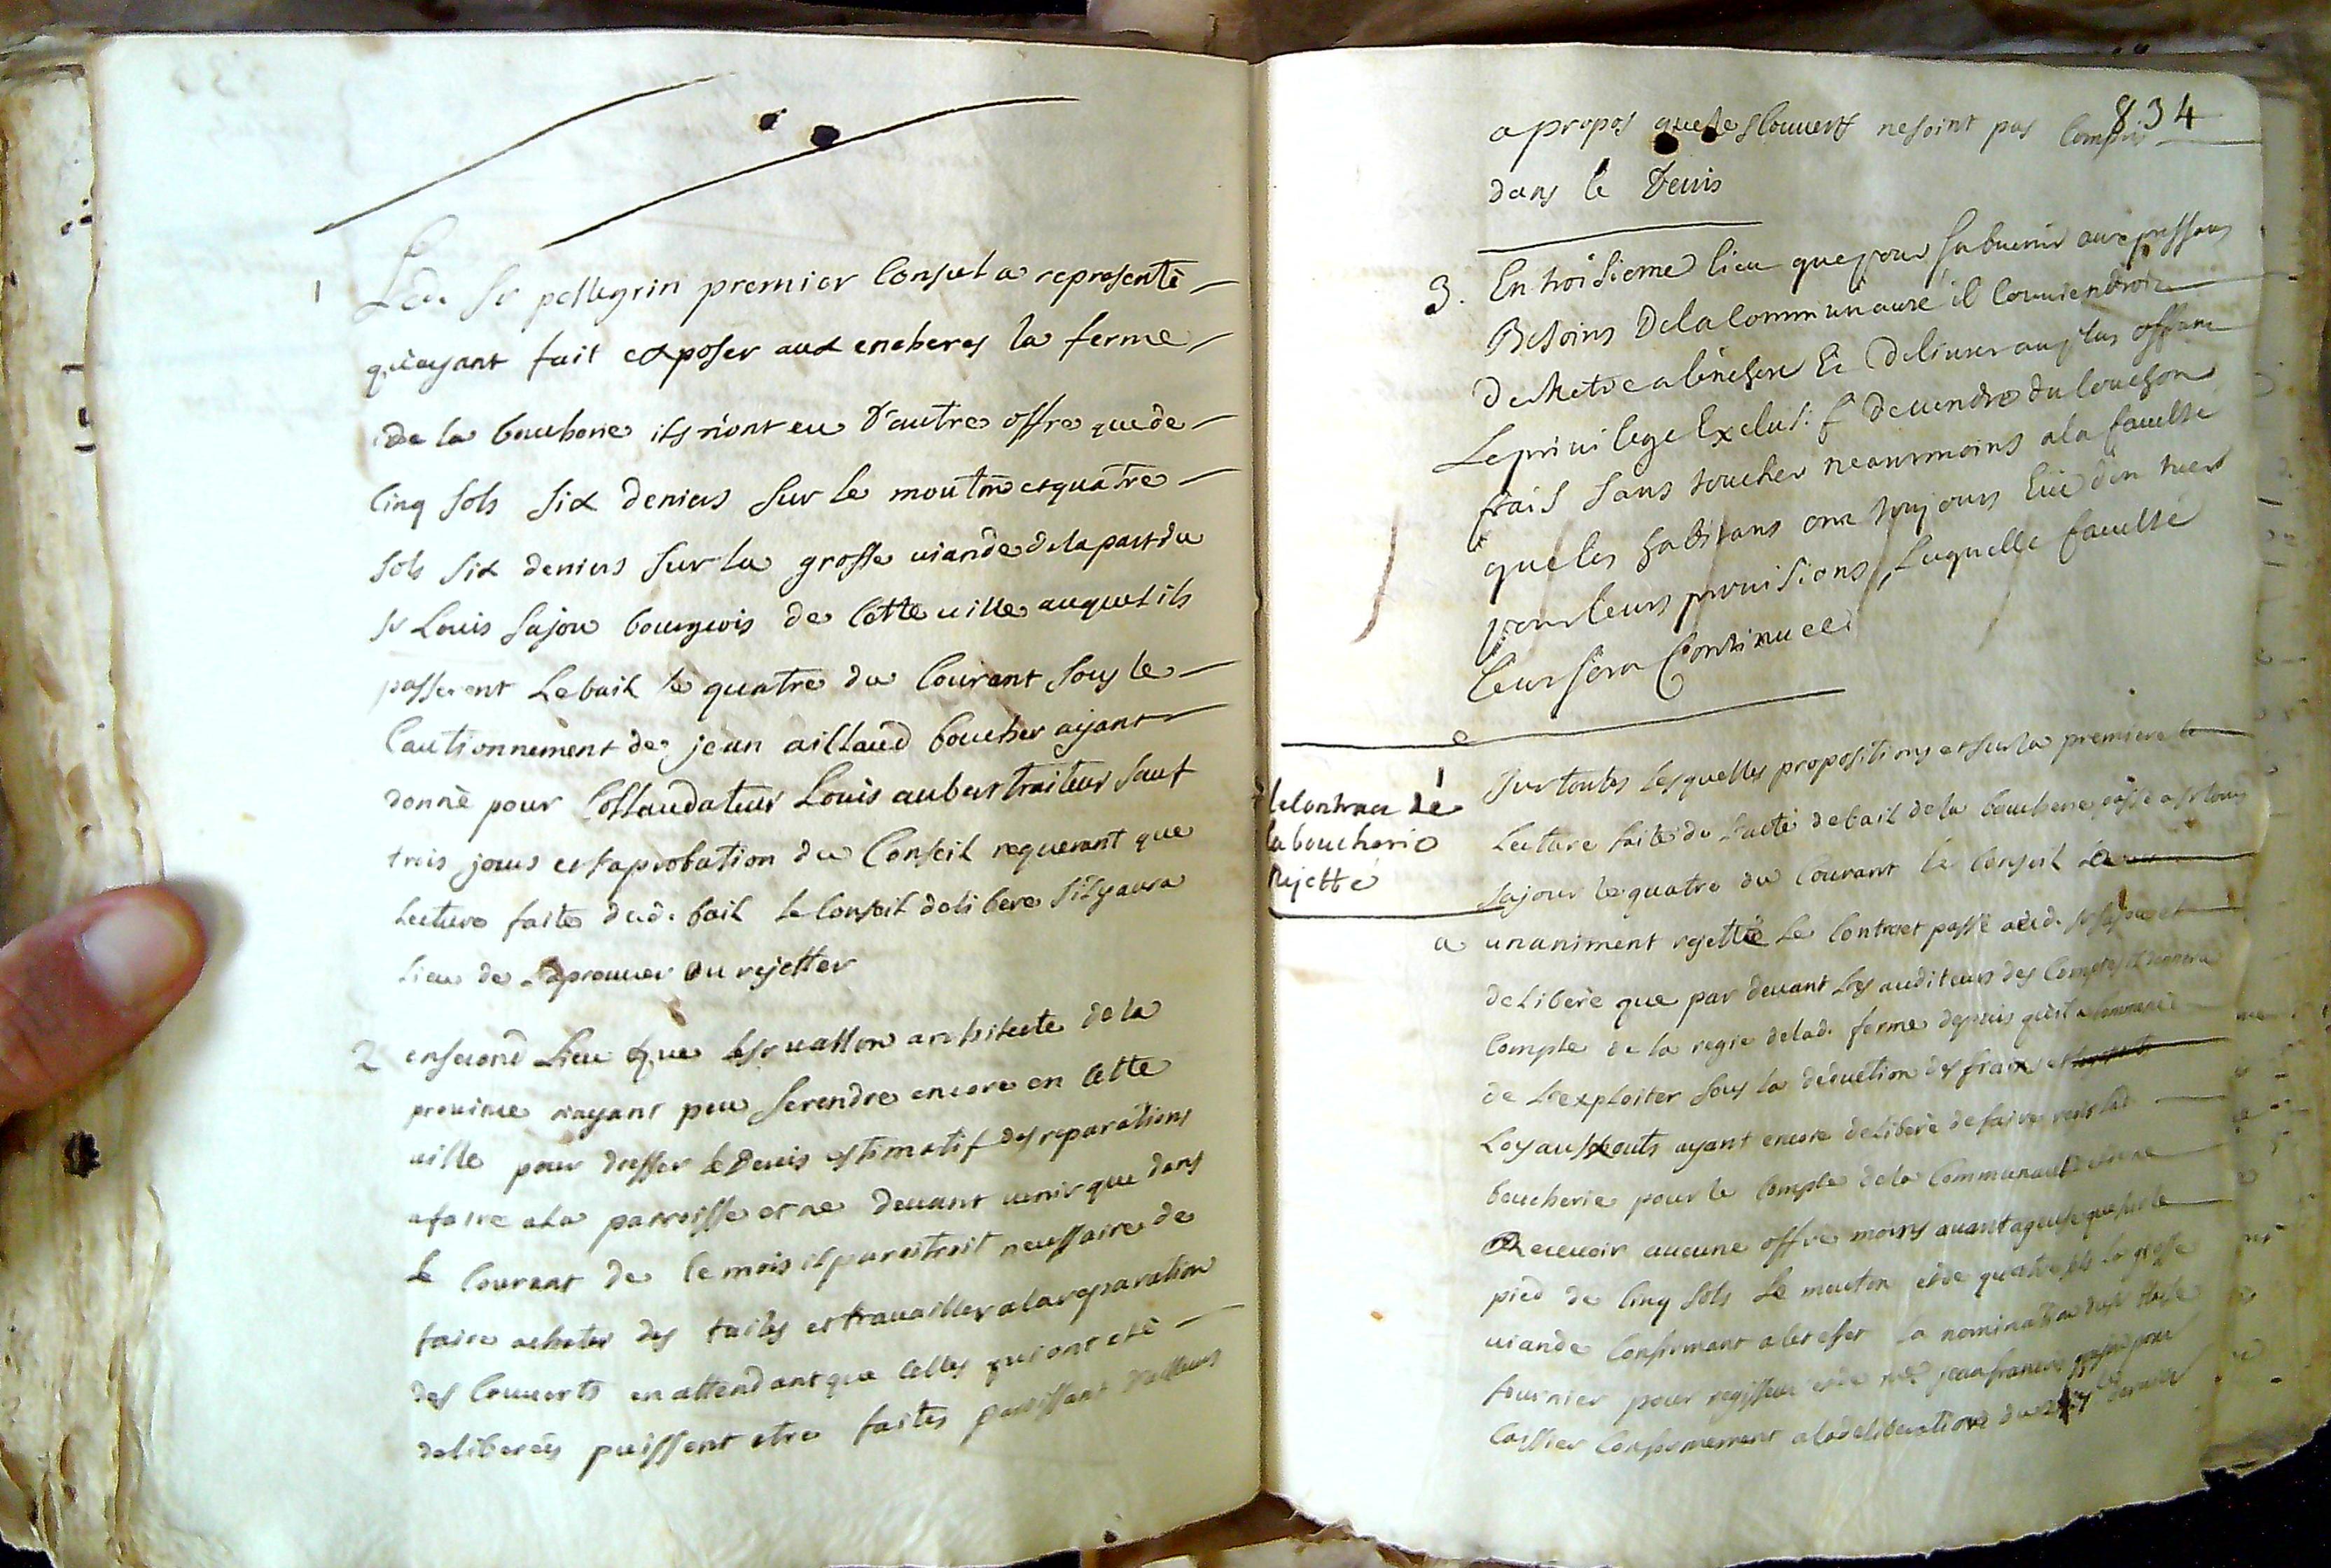 1 Led. Sr pellegrin premier Consul a representé
qu'ayant fait exposer aux encheres la ferme
de la boucherie ils n'ont eu d'autre offre que de
Cinq sols six deniers sur le mouton et quatre
sols six deniers sur la grosse viande de la part du
Sr Louis Sajou bourgeois de Cette ville auquel ils
passerent Le bail le quatre du Courant sous le
Cautionnement de jean aillaud boucher ayant
donné pour Collaudateur Louis aubert traiteur sauf
trois jours et l'aprobation du Conseil requerant que
Lecture faite dud. bail Le Conseil delibere s'il y aura
Lieu de L'aprouver ou rejetter
2 en second Lieu que le sr vallon architecte de la
province n'ayant peu se rendre encore en Cette
ville pour dresser le Devis estimatif des reparations
a faire a la parroisse et ne devant venir que dans
le Courent de Ce mois il paroitroit necessaire de
faire acheter des tuiles et travailler a la reparation
des Couverts en attendant que Celles qui ont eté
deliberées puissent etre faites paroissant d'ailleurs
834
a propos que les Couverts ne soint pas Compris
dans le Devis
3. En troisieme lieu que pour subvenir aux pressans
Besoins De la Communauté il Conviendroit
De Metre a l'enchere Et Delivrer au plus offrant
Le privilege Exclusif De vendre du Couchon
frais sans toucher neanmoins a la faculté
que les habitans ont toujours Eüe d'en tuer
pour leurs provisions, Laquelle faculté
leur sera Continuée
le Contract de
la boucherie
Rejetté
1 Sur toutes Lesquelles propositions et sur la premiere
Lecture faite de l'acte de bail de la boucherie passé a sr Louis
Sajou le quatre du Courant le Conseil
a unaniment rejetté Le Contract passé aud. Sr Sajou et
deLiberé que par devant Les auditeurs des Comptes il donnera
Compte de la regie de lad. ferme depuis qu'il a Commencé
de L'exploiter sous la deduction des frais et
Loyaux Couts ayant encore deliberé de faire regir lad.
boucherie pour le Compte de la Communauté et de ne
Recevoir aucune offre moins avantageuse que sur le
pied de Cinq sols Le mouton et de quatre sols la grosse
viande Confirmant a Cet effet la nomination du sr
fournier pour regisseur et de me jean francois pour
Caissier Conformement a la deliberation du dernier